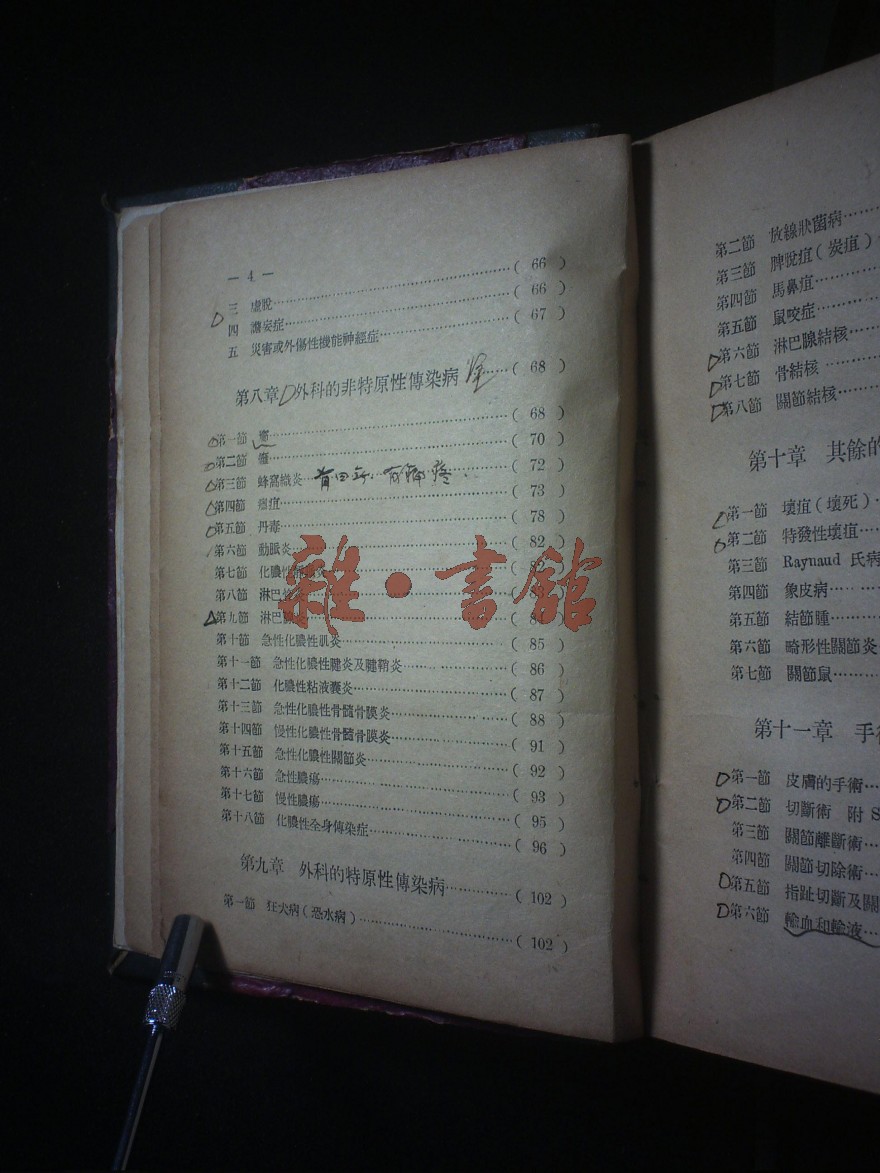 — 4 —
三 虛脫 ( 66 )
四 譫妄症 ( 66 )
五 災害或外傷性機能神經症 ( 67 )
第八章 外科的非特原性傳染病 ( 68 )
第一節 ( 68 )
第二節 ( 70 )
第三節 蜂窩織炎 ( 72 )
第四節 瘭疽 ( 73 )
第五節 丹毒 ( 78 )
第六節 動脈炎 ( 82 )
第七節 化膿性
第八節 淋巴
第九節 淋巴腺
第十節 急性化膿性肌炎 ( 85 )
第十一節 急性化膿性腱炎及腱鞘炎 ( 86 )
第十二節 化膿性粘液囊炎 ( 87 )
第十三節 急性化膿性骨髓骨膜炎 ( 88 )
第十四節 慢性化膿性骨髓骨膜炎 ( 91 )
第十五節 急性化膿性關節炎 ( 92 )
第十六節 急性膿瘍 ( 93 )
第十七節 慢性膿瘍 ( 95 )
第十八節 化膿性全身傳染症 ( 96 )
第九章 外科的特原性傳染病 ( 102 )
第一節 狂犬病(恐水病) ( 102 )
雜·書館
第二節 放線狀菌病
第三節 脾脫疽(炭疽)
第四節 馬鼻疽
第五節 鼠咬症
第六節 淋巴腺結核
第七節 骨結核
第八節 關節結核
第十章 其餘的
第一節 壞疽(壞死)
第二節 特發性壞疽
第三節 Raynaud 氏病
第四節 象皮病
第五節 結節腫
第六節 畸形性關節炎
第七節 關節鼠
第十一章 手術
第一節 皮膚的手術
第二節 切斷術 附 S
第三節 關節離斷術
第四節 關節切除術
第五節 指趾切斷及關
第六節 輸血和輸液